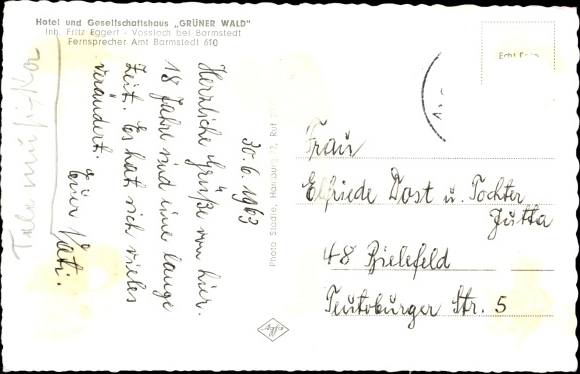 Hotel und Gesellschaftshaus „GRÜNER WALD"
Inh. Fritz Eggert - Vossloch bei Barmstedt
Fernsprecher Amt Barmstedt 610
30.6.1963
Herzliche Grüße von hier.
18 Jahre sind eine lange
Zeit. Es hat sich vieles
verändert.
Euer Vati.
Photo Stadie, Hamburg
Echt Foto
Frau
Elfriede Dost u. Tochter
Jutta
48 Bielefeld
Teutoburger Str. 5
Agfa